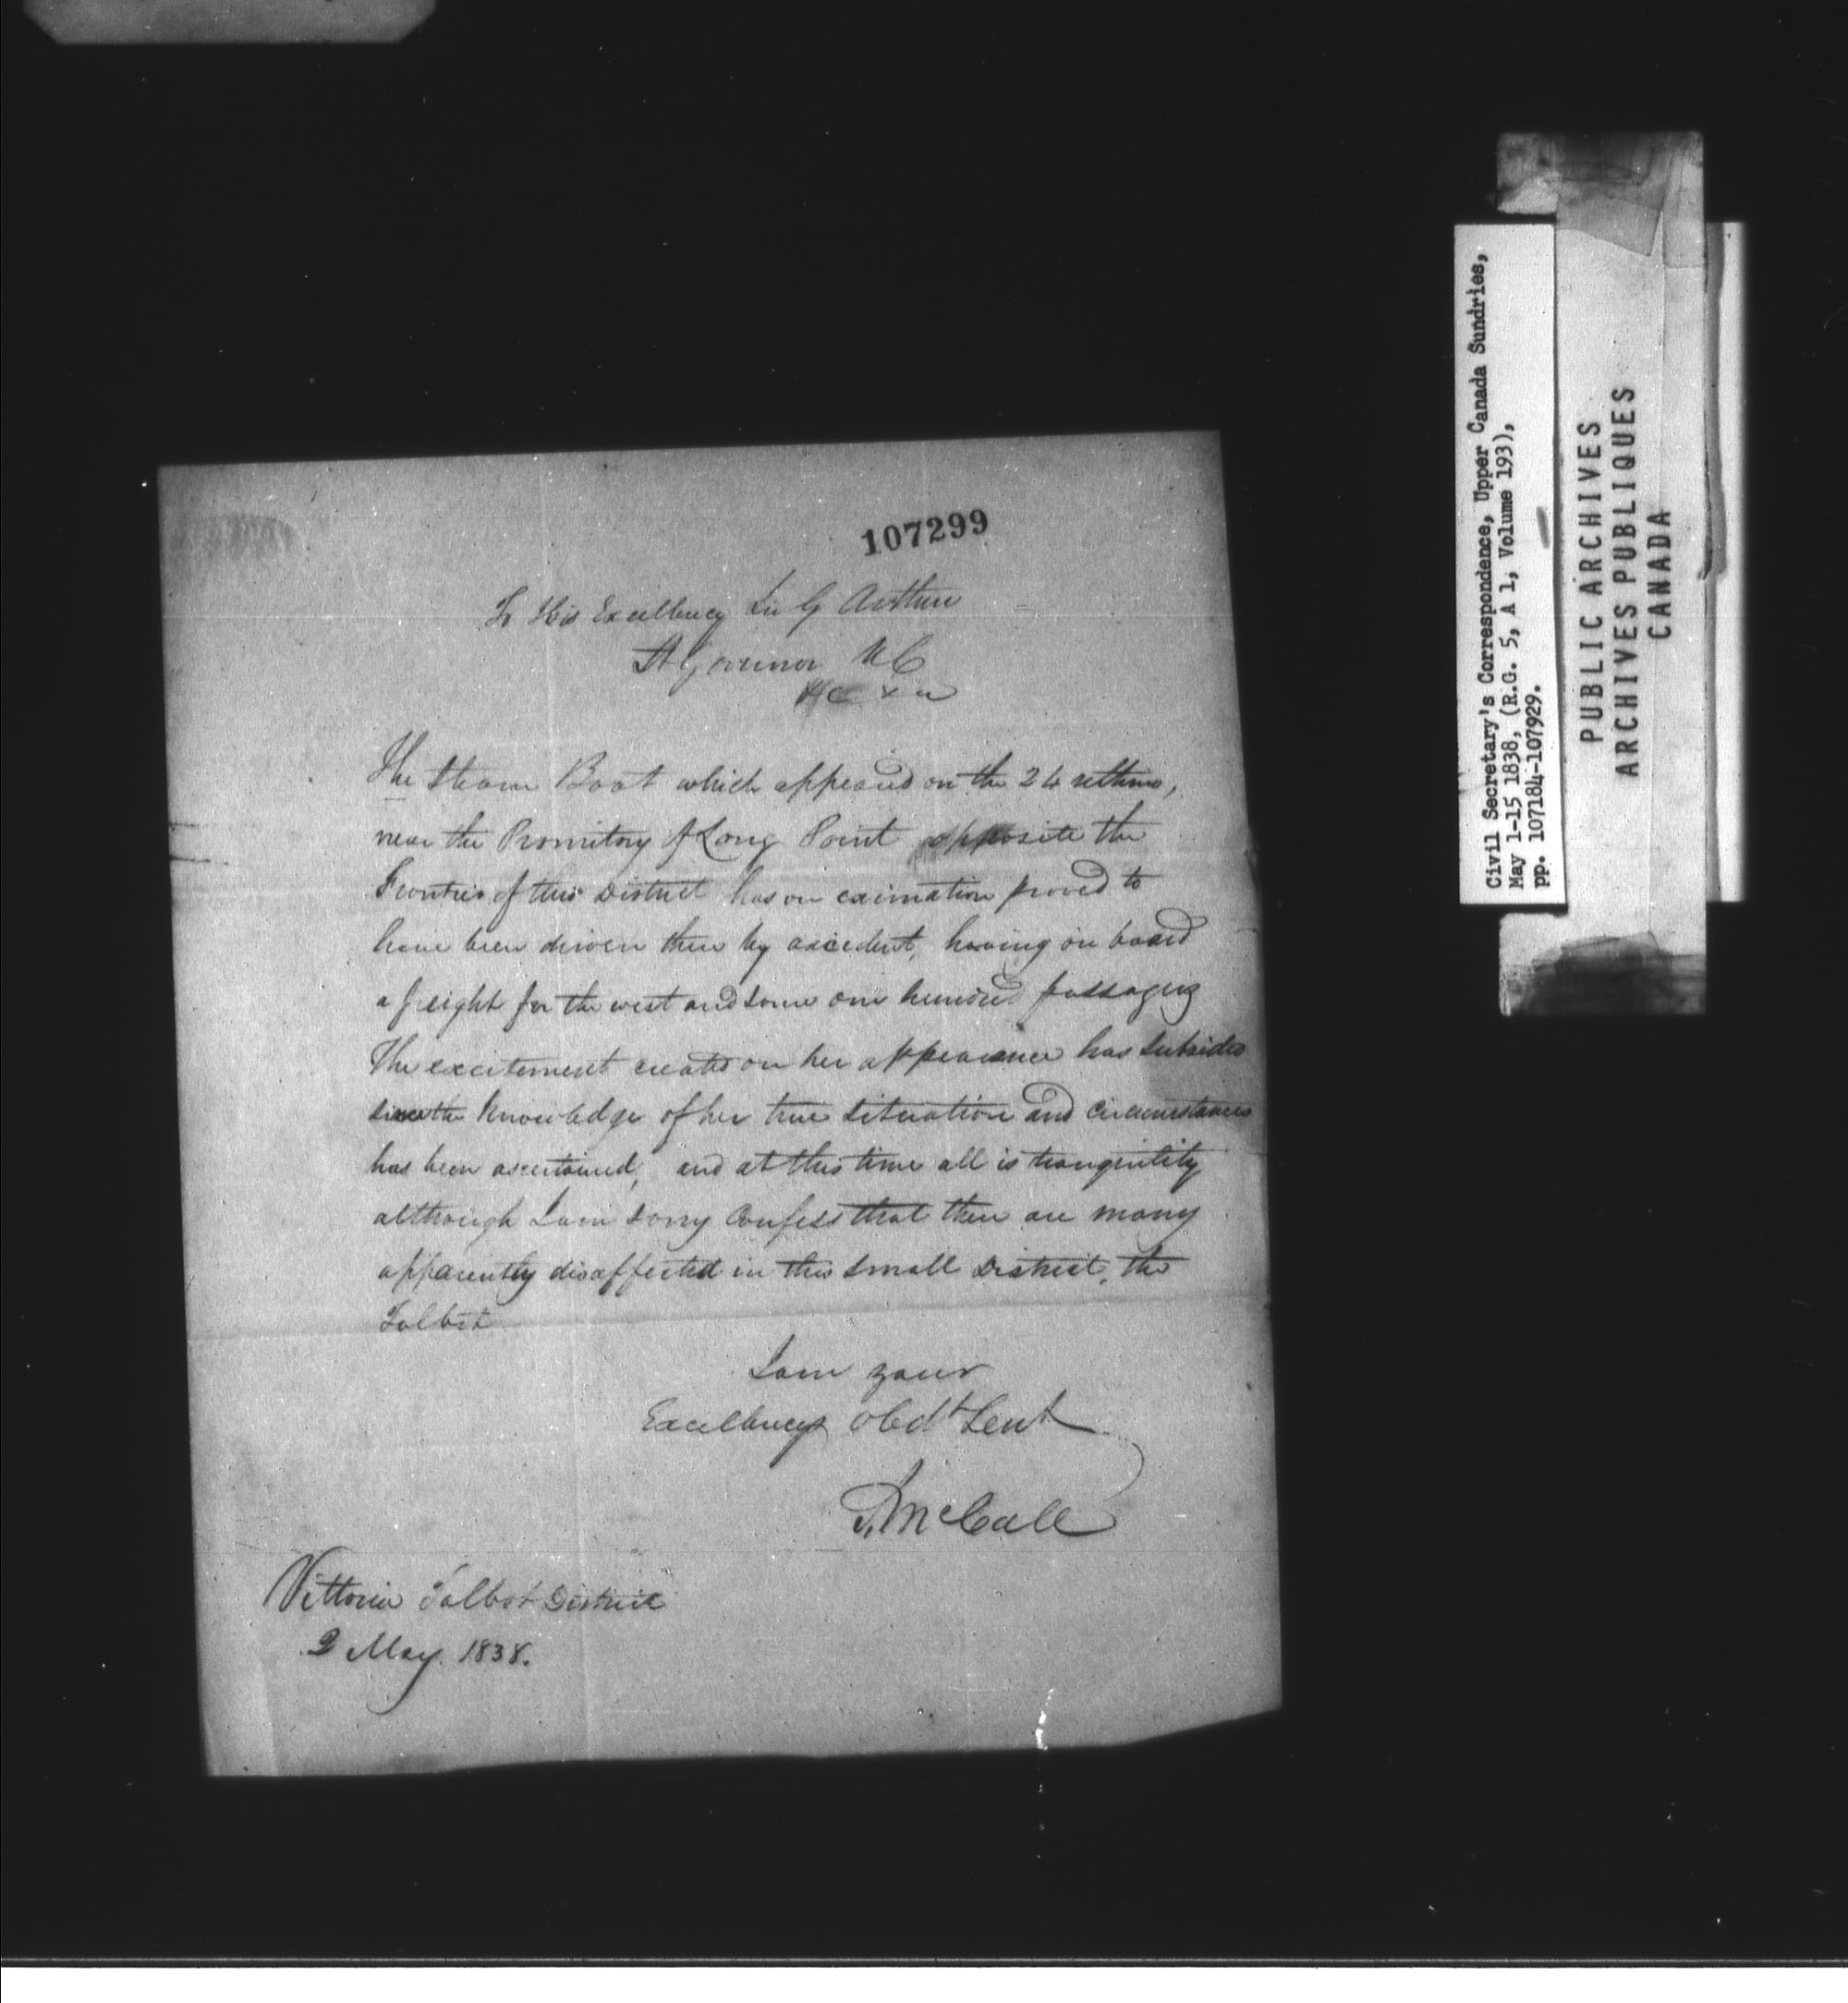 107299
To His Excellency Sir G Arthur
Lt Governor U C
&c &c
The Steam Boat which appeared on the 24 ultimo,
near the Promitory of Long Point opposite the
Frontier of this District has on eximation proved to
have been driven there by accedent, having on board
a freight for the west and some one hundred passagers
The excitement created on her appearance has subsided
since the knowledge of her true situation and circumstances
has been ascertained, and at this time all is tranquility
although I am sorry Confess that there are many
apparently disaffected in this small District, the
Talbot
I am your
Excellencys Obdt Servt
D. McCall
Vittoria Talbot District
2 May 1838.
Civil Secretary's Correspondence, Upper Canada Sundries,
May 1-15 1838, (R.G. 5, A 1, Volume 193),
pp. 107184-107929.
PUBLIC ARCHIVES
ARCHIVES PUBLIQUES
CANADA